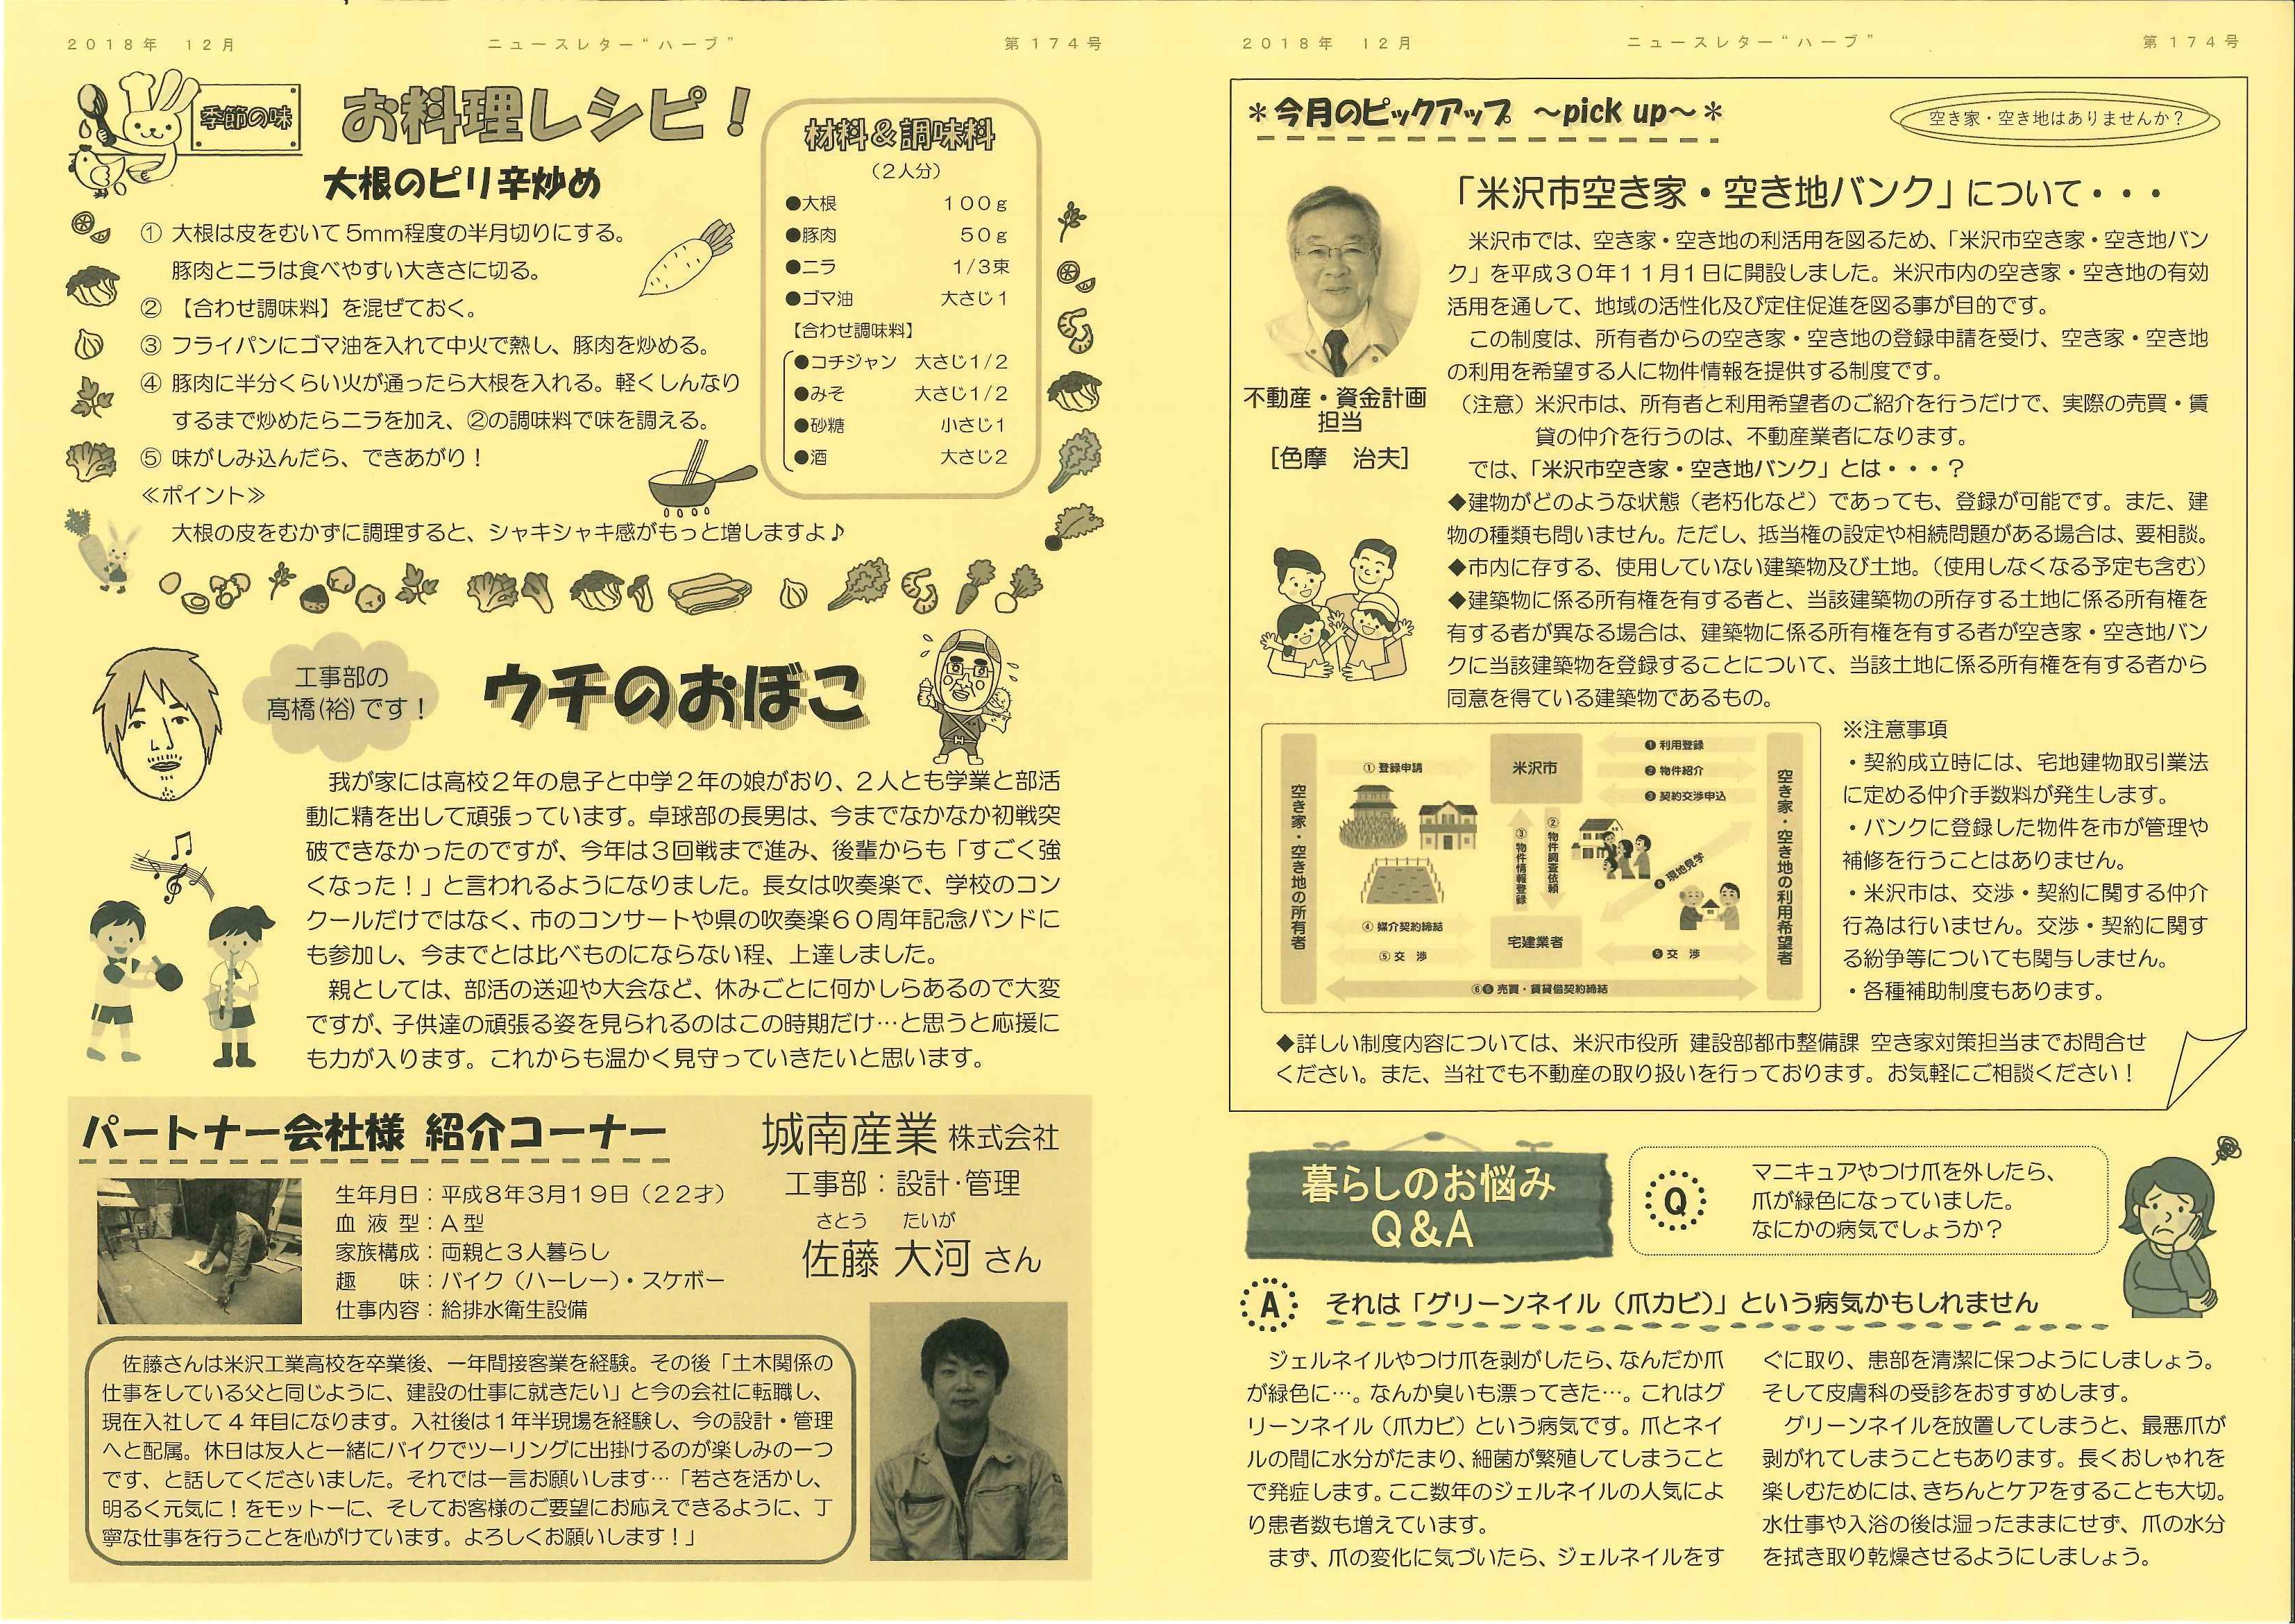 2018年　12月
ニュースレター“ハーブ”
第174号
季節の味
お料理レシピ！
大根のピリ辛炒め
① 大根は皮をむいて5mm程度の半月切りにする。
豚肉とニラは食べやすい大きさに切る。
② 【合わせ調味料】を混ぜておく。
③ フライパンにゴマ油を入れて中火で熱し、豚肉を炒める。
④ 豚肉に半分くらい火が通ったら大根を入れる。軽くしんなり
するまで炒めたらニラを加え、②の調味料で味を調える。
⑤ 味がしみ込んだら、できあがり！
≪ポイント≫
大根の皮をむかずに調理すると、シャキシャキ感がもっと増しますよ♪
材料＆調味料
（2人分）
●大根　100g
●豚肉　50g
●ニラ　1/3束
●ゴマ油　大さじ1
【合わせ調味料】
●コチジャン　大さじ1/2
●みそ　大さじ1/2
●砂糖　小さじ1
●酒　大さじ2
工事部の
髙橋(裕)です！
ウチのおぼこ
我が家には高校2年の息子と中学2年の娘がおり、2人とも学業と部活
動に精を出して頑張っています。卓球部の長男は、今までなかなか初戦突
破できなかったのですが、今年は3回戦まで進み、後輩からも「すごく強
くなった！」と言われるようになりました。長女は吹奏楽で、学校のコン
クールだけではなく、市のコンサートや県の吹奏楽60周年記念バンドに
も参加し、今までとは比べものにならない程、上達しました。
親としては、部活の送迎や大会など、休みごとに何かしらあるので大変
ですが、子供達の頑張る姿を見られるのはこの時期だけ…と思うと応援に
も力が入ります。これからも温かく見守っていきたいと思います。
パートナー会社様 紹介コーナー
城南産業 株式会社
工事部：設計・管理
さとう　たいが
佐藤 大河 さん
生年月日：平成8年3月19日（22才）
血 液 型：A型
家族構成：両親と3人暮らし
趣　　味：バイク（ハーレー）・スケボー
仕事内容：給排水衛生設備
佐藤さんは米沢工業高校を卒業後、一年間接客業を経験。その後「土木関係の
仕事をしている父と同じように、建設の仕事に就きたい」と今の会社に転職し、
現在入社して4年目になります。入社後は1年半現場を経験し、今の設計・管理
へと配属。休日は友人と一緒にバイクでツーリングに出掛けるのが楽しみの一つ
です、と話してくださいました。それでは一言お願いします…「若さを活かし、
明るく元気に！をモットーに、そしてお客様のご要望にお応えできるように、丁
寧な仕事を行うことを心がけています。よろしくお願いします！」
2018年　12月
ニュースレター“ハーブ”
第174号
＊今月のピックアップ　～pick up～＊
空き家・空き地はありませんか？
「米沢市空き家・空き地バンク」について・・・
不動産・資金計画
担当
［色摩　治夫］
米沢市では、空き家・空き地の利活用を図るため、「米沢市空き家・空き地バン
ク」を平成30年11月1日に開設しました。米沢市内の空き家・空き地の有効
活用を通して、地域の活性化及び定住促進を図る事が目的です。
この制度は、所有者からの空き家・空き地の登録申請を受け、空き家・空き地
の利用を希望する人に物件情報を提供する制度です。
（注意）米沢市は、所有者と利用希望者のご紹介を行うだけで、実際の売買・賃
貸の仲介を行うのは、不動産業者になります。
では、「米沢市空き家・空き地バンク」とは・・・？
◆建物がどのような状態（老朽化など）であっても、登録が可能です。また、建
物の種類も問いません。ただし、抵当権の設定や相続問題がある場合は、要相談。
◆市内に存する、使用していない建築物及び土地。（使用しなくなる予定も含む）
◆建築物に係る所有権を有する者と、当該建築物の所存する土地に係る所有権を
有する者が異なる場合は、建築物に係る所有権を有する者が空き家・空き地バン
クに当該建築物を登録することについて、当該土地に係る所有権を有する者から
同意を得ている建築物であるもの。
空き家・空き地の所有者
①登録申請
米沢市
❶利用登録
❷物件紹介
❸契約交渉申込
②物件調査依頼
③物件情報登録
❹現地見学
④媒介契約締結
⑤交　渉
宅建業者
❺交　渉
⑥❻売買・賃貸借契約締結
空き家・空き地の利用希望者
※注意事項
・契約成立時には、宅地建物取引業法
に定める仲介手数料が発生します。
・バンクに登録した物件を市が管理や
補修を行うことはありません。
・米沢市は、交渉・契約に関する仲介
行為は行いません。交渉・契約に関す
る紛争等についても関与しません。
・各種補助制度もあります。
◆詳しい制度内容については、米沢市役所 建設部都市整備課 空き家対策担当までお問合せ
ください。また、当社でも不動産の取り扱いを行っております。お気軽にご相談ください！
暮らしのお悩み
Q&A
Q
マニキュアやつけ爪を外したら、
爪が緑色になっていました。
なにかの病気でしょうか？
A
それは「グリーンネイル（爪カビ）」という病気かもしれません
ジェルネイルやつけ爪を剥がしたら、なんだか爪
が緑色に…。なんか臭いも漂ってきた…。これはグ
リーンネイル（爪カビ）という病気です。爪とネイ
ルの間に水分がたまり、細菌が繁殖してしまうこと
で発症します。ここ数年のジェルネイルの人気によ
り患者数も増えています。
まず、爪の変化に気づいたら、ジェルネイルをす
ぐに取り、患部を清潔に保つようにしましょう。
そして皮膚科の受診をおすすめします。
グリーンネイルを放置してしまうと、最悪爪が
剥がれてしまうこともあります。長くおしゃれを
楽しむためには、きちんとケアをすることも大切。
水仕事や入浴の後は湿ったままにせず、爪の水分
を拭き取り乾燥させるようにしましょう。